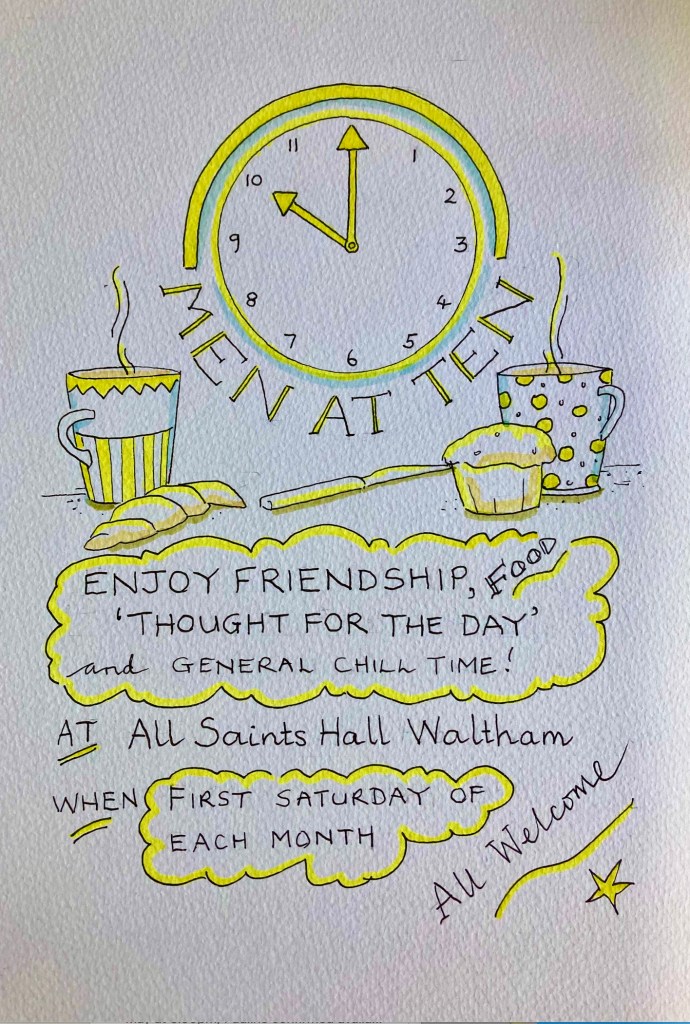 11
1
10
2
9
3
8
4
7
5
6
MEN AT TEN
ENJOY FRIENDSHIP, FOOD
'THOUGHT FOR THE DAY'
and GENERAL CHILL TIME!
AT All Saints Hall Waltham
WHEN FIRST SATURDAY OF
EACH MONTH
All Welcome